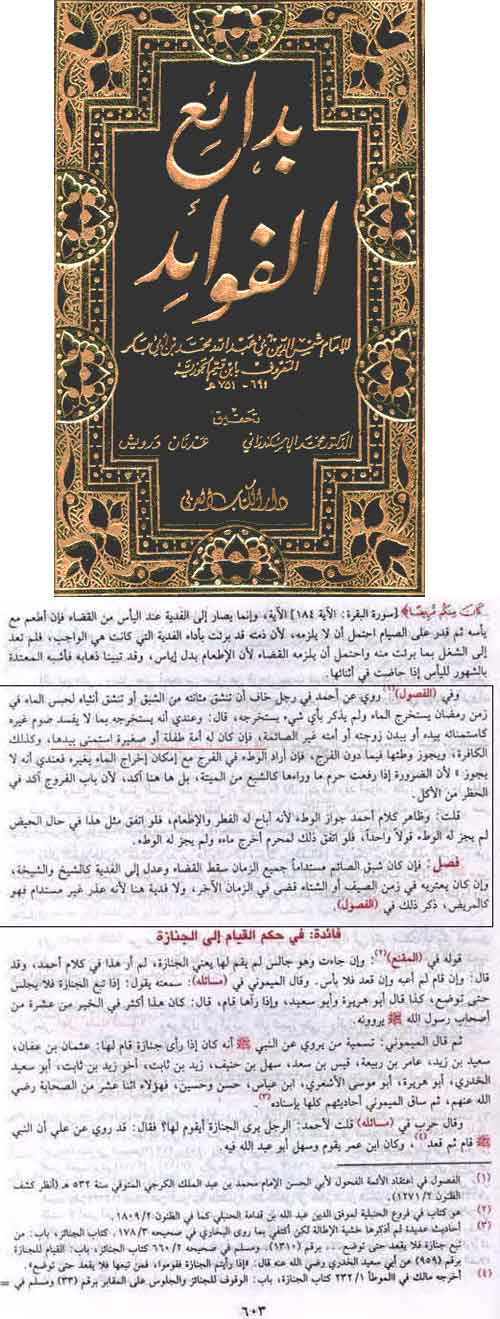 بدائع
الفوائد
للإمام شمس الدين أبي عبد الله محمد بن أبي بكر
المعروف بابن قيم الجوزية
٦٩١ - ٧٥١ هـ
تحقيق
الدكتور محمد الإسكندراني عدنان درويش
دار الكتاب العربي
كَانَ مِنكُم مَّرِيضًا﴾ [سورة البقرة: الآية ١٨٤] الآية، وإنما يصار إلى الفدية عند اليأس من القضاء فإن أطعم مع
يأسه ثم قدر على الصيام احتمل أن لا يلزمه، لأن ذمته قد برئت بأداء الفدية التي كانت هي الواجب، فلم تعد
إلى الشغل بما برئت منه واحتمل أن يلزمه القضاء لأن الإطعام بدل إياس، وقد تبينا ذهابه فأشبه المعتدة
بالشهور لليأس إذا حاضت في أثنائها.
وفي (الفصول)(١) روي عن أحمد في رجل خاف أن تنشق مثانته من الشبق أو تنشق أنثياه لحبس الماء في
زمن رمضان يستخرج الماء ولم يذكر بأي شيء يستخرجه، قال: وعندي أنه يستخرجه بما لا يفسد صوم غيره
كاستمنائه بيده أو ببدن زوجته أو أمته غير الصائمة، فإن كان له أمة طفلة أو صغيرة استمنى بيدها، وكذلك
الكافرة، ويجوز وطئها فيما دون الفرج، فإن أراد الوطء في الفرج مع إمكان إخراج الماء بغيره فعندي أنه لا
يجوز » لأن الضرورة إذا رفعت حرم ما وراءها كالشبع من الميتة، بل ها هنا آكد، لأن باب الفروج آكد في
الحظر من الأكل.
قلت: وظاهر كلام أحمد جواز الوطء لأنه أباح له الفطر والإطعام، فلو اتفق مثل هذا في حال الحيض
لم يجز له الوطء قولاً واحداً، فلو اتفق ذلك لمحرم أخرج ماءه ولم يجز له الوطء.
فصل: فإن كان شبق الصائم مستداماً جميع الزمان سقط القضاء وعدل إلى الفدية كالشيخ والشيخة،
وإن كان يعتريه في زمن الصيف أو الشتاء قضى في الزمان الآخر، ولا فدية هنا لأنه عذر غير مستدام فهو
كالمريض، ذكر ذلك في (الفصول)
فائدة: في حكم القيام إلى الجنازة
قوله في (المقنع)(٢): وإن جاءت وهو جالس لم يقم لها يعني الجنازة، لم أر هذا في كلام أحمد، وقد
قال: وإن قام لم أعبه وإن قعد فلا بأس. وقال الميموني في (مسائله): سمعته يقول: إذا تبع الجنازة فلا يجلس
حتى توضع، كذا قال أبو هريرة وأبو سعيد، وإذا رآها قام، قال: كان هذا أكثر في الخبر من عشرة من
أصحاب رسول الله ﷺ يروونه.
ثم قال الميموني: تسمية من يروي عن النبي ﷺ أنه كان إذا رأى جنازة قام لها: عثمان بن عفان،
سعيد بن زيد، عامر بن ربيعة، قيس بن سعد، سهل بن حنيف، زيد بن ثابت، أخو زيد بن ثابت، أبو سعيد
الخدري، أبو هريرة، أبو موسى الأشعري، ابن عباس، حسن وحسين، فهؤلاء اثنا عشر من الصحابة رضي
الله عنهم، ثم ساق الميموني أحاديثهم كلها بإسناده(٣)
وقال حرب في (مسائله) قلت لأحمد: الرجل يرى الجنازة أيقوم لها؟ فقال: قد روي عن علي أن النبي
ﷺ قام ثم قعد(٤)، وكان ابن عمر يقوم وسهل أبو عبد الله فيه.
(١) الفصول في اعتقاد الأئمة الفحول لأبي الحسن الإمام محمد بن عبد الملك الكرجي المتوفى سنة ٥٣٢ هـ (أنظر كشف
الظنون ١٢٧١/٢).
(٢) هو كتاب في فروع الحنبلية لموفق الدين عبد الله بن قدامة الحنبلي كما في الظنون ١٨٠٩/٢.
(٣) أحاديث عديدة لم أذكرها خشية الإطالة لكن أكتفي بما روى البخاري في صحيحه ١٧٨/٣ كتاب الجنائز، باب: من
تبع جنازة فلا يقعد حتى توضع... برقم (١٣١٠). ومسلم في صحيحه ٦٦٠/٢ كتاب الجنائز، باب: القيام للجنازة
برقم (٩٥٩) عن أبي سعيد الخدري رضي الله عنه قال: «إذا رأيتم الجنازة فقوموا، فمن تبعها فلا يقعد حتى توضع».
(٤) أخرجه مالك في الموطأ ٢٣٢/١ كتاب الجنازة، باب: الوقوف للجنائز والجلوس على المقابر برقم (٣٣) ومسلم في =
٦٠٣